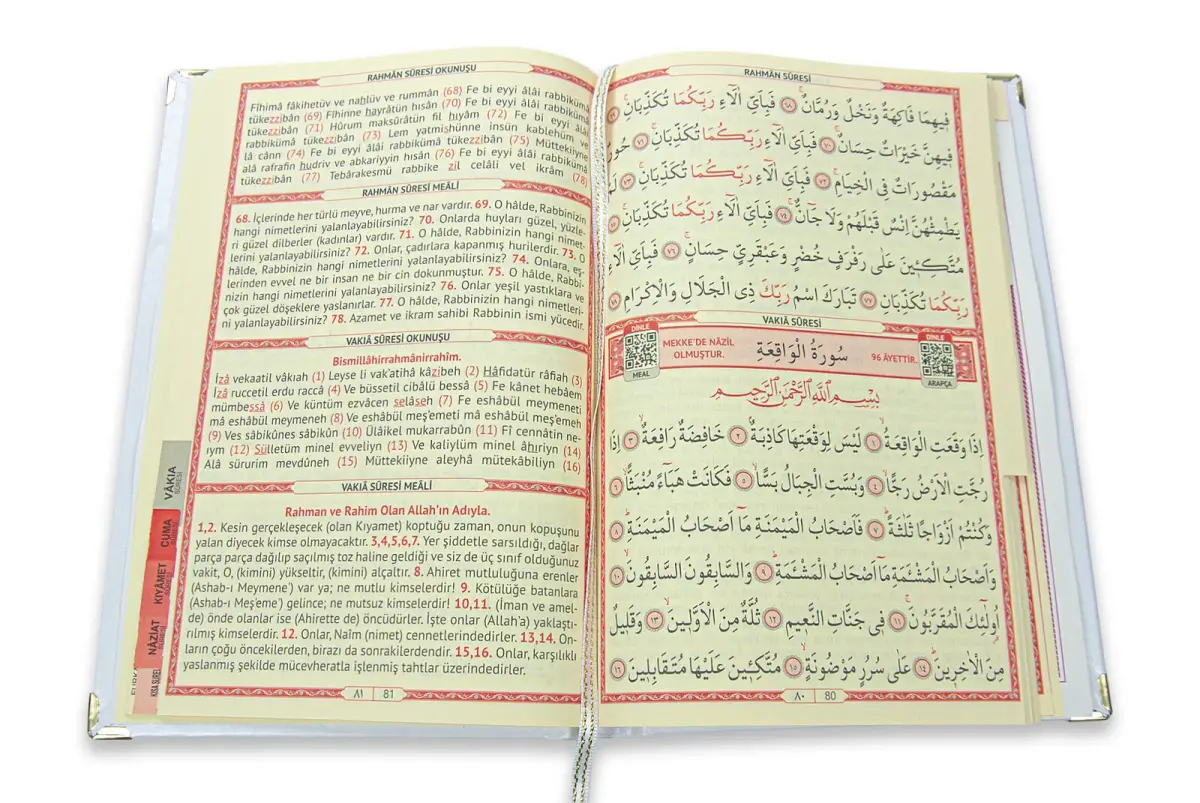 RAHMÂN SÛRESİ
فِيهِمَا فَاكِهَةٌ وَنَخْلٌ وَرُمَّانٌۚ ﴿٦٨﴾ فَبِاَيِّ اٰلَٓاءِ رَبِّكُمَا تُكَذِّبَانِۚ ﴿٦٩﴾
فِيهِنَّ خَيْرَاتٌ حِسَانٌۚ ﴿٧٠﴾ فَبِاَيِّ اٰلَٓاءِ رَبِّكُمَا تُكَذِّبَانِۚ ﴿٧١﴾ حُورٌ
مَقْصُورَاتٌ فِي الْخِيَامِۚ ﴿٧٢﴾ فَبِاَيِّ اٰلَٓاءِ رَبِّكُمَا تُكَذِّبَانِۚ ﴿٧٣﴾ لَمْ
يَطْمِثْهُنَّ اِنْسٌ قَبْلَهُمْ وَلَا جَٓانٌّۚ ﴿٧٤﴾ فَبِاَيِّ اٰلَٓاءِ رَبِّكُمَا تُكَذِّبَانِۚ ﴿٧٥﴾
مُتَّكِـ۪ٔينَ عَلٰى رَفْرَفٍ خُضْرٍ وَعَبْقَرِيٍّ حِسَانٍۚ ﴿٧٦﴾ فَبِاَيِّ اٰلَٓاءِ
رَبِّكُمَا تُكَذِّبَانِ ﴿٧٧﴾ تَبَارَكَ اسْمُ رَبِّكَ ذِي الْجَلَالِ وَالْاِكْرَامِ ﴿٧٨﴾
VAKIÂ SÛRESİ
DİNLE
MEAL
MEKKE'DE NÂZİL
OLMUŞTUR.
سُورَةُ الْوَاقِعَةِ
96 ÂYETTİR.
DİNLE
ARAPÇA
بِسْمِ اللّٰهِ الرَّحْمٰنِ الرَّحِيمِ
اِذَا وَقَعَتِ الْوَاقِعَةُۙ ﴿١﴾ لَيْسَ لِوَقْعَتِهَا كَاذِبَةٌۢ ﴿٢﴾ خَافِضَةٌ رَافِعَةٌۙ ﴿٣﴾ اِذَا
رُجَّتِ الْاَرْضُ رَجًّاۙ ﴿٤﴾ وَبُسَّتِ الْجِبَالُ بَسًّاۙ ﴿٥﴾ فَكَانَتْ هَبَٓاءً مُنْبَثًّاۙ ﴿٦﴾
وَكُنْتُمْ اَزْوَاجًا ثَلٰثَةًۜ ﴿٧﴾ فَاَصْحَابُ الْمَيْمَنَةِ مَٓا اَصْحَابُ الْمَيْمَنَةِۜ ﴿٨﴾
وَاَصْحَابُ الْمَشْـَٔمَةِ مَٓا اَصْحَابُ الْمَشْـَٔمَةِۜ ﴿٩﴾ وَالسَّابِقُونَ السَّابِقُونَۙ ﴿١٠﴾
اُو۬لٰٓئِكَ الْمُقَرَّبُونَۚ ﴿١١﴾ فِي جَنَّاتِ النَّعِيمِ ﴿١٢﴾ ثُلَّةٌ مِنَ الْاَوَّلِينَۙ ﴿١٣﴾ وَقَلِيلٌ
مِنَ الْاٰخِرِينَۜ ﴿١٤﴾ عَلٰى سُرُرٍ مَوْضُونَةٍۙ ﴿١٥﴾ مُتَّكِـ۪ٔينَ عَلَيْهَا مُتَقَابِلِينَ ﴿١٦﴾
٨٠ 80
RAHMÂN SÛRESİ OKUNUŞU
Fîhimâ fâkihetüv ve nahlüv ve rummân (68) Fe bi eyyi âlâi rabbikümâ
tükezzibân (69) Fîhinne hayrâtün hısân (70) Fe bi eyyi âlâi rabbikümâ
tükezzibân (71) Hûrum maksûrâtün fil hıyâm (72) Fe bi eyyi âlâi
rabbikümâ tükezzibân (73) Lem yatmishünne insün kablehüm ve
lâ cânn (74) Fe bi eyyi âlâi rabbikümâ tükezzibân (75) Müttekiîyne
alâ rafrafin hudriv ve abkariyyin hısân (76) Fe bi eyyi âlâi rabbikümâ
tükezzibân (77) Tebârakesmü rabbike zil celâli vel ikrâm (78)
RAHMÂN SÛRESİ MEÂLİ
68. İçlerinde her türlü meyve, hurma ve nar vardır. 69. O hâlde, Rabbinizin
hangi nimetlerini yalanlayabilirsiniz? 70. Onlarda huyları güzel, yüzle-
ri güzel dilberler (kadınlar) vardır. 71. O hâlde, Rabbinizin hangi nimet-
lerini yalanlayabilirsiniz? 72. Onlar, çadırlara kapanmış hurilerdir. 73. O
hâlde, Rabbinizin hangi nimetlerini yalanlayabilirsiniz? 74. Onlara, eş-
lerinden evvel ne bir insan ne bir cin dokunmuştur. 75. O hâlde, Rabbi-
nizin hangi nimetlerini yalanlayabilirsiniz? 76. Onlar yeşil yastıklara ve
çok güzel döşeklere yaslanırlar. 77. O hâlde, Rabbinizin hangi nimetleri-
ni yalanlayabilirsiniz? 78. Azamet ve ikram sahibi Rabbinin ismi yücedir.
VAKIÂ SÛRESİ OKUNUŞU
Bismillâhirrahmânirrahîm.
İzâ vekaatil vâkıah (1) Leyse li vak'atihâ kâzibeh (2) Hâfidatür râfiah (3)
İzâ ruccetil erdu raccâ (4) Ve büssetil cibâlü bessâ (5) Fe kânet hebâem
mümbessâ (6) Ve küntüm ezvâcen selâseh (7) Fe eshâbül meymeneti
mâ eshâbül meymeneh (8) Ve eshâbül meş'emeti mâ eshâbül meş'emeh
(9) Ves sâbikûnes sâbikûn (10) Ülâikel mukarrabûn (11) Fî cennâtin ne-
ıym (12) Sülletüm minel evveliyn (13) Ve kaliylüm minel âhıriyn (14)
Alâ sürurim mevdûneh (15) Müttekiîyne aleyhâ mütekâbiliyn (16)
VAKIÂ SÛRESİ MEÂLİ
Rahman ve Rahim Olan Allah'ın Adıyla.
1,2. Kesin gerçekleşecek (olan Kıyamet) koptuğu zaman, onun kopuşunu
yalan diyecek kimse olmayacaktır. 3,4,5,6,7. Yer şiddetle sarsıldığı, dağlar
parça parça dağılıp saçılmış toz haline geldiği ve siz de üç sınıf olduğunuz
vakit, O, (kimini) yükseltir, (kimini) alçaltır. 8. Ahiret mutluluğuna erenler
(Ashab-ı Meymene') var ya; ne mutlu kimselerdir! 9. Kötülüğe batanlara
(Ashab-ı Meş'eme') gelince; ne mutsuz kimselerdir! 10,11. (İman ve amel-
de) önde olanlar ise (Ahirette de) öncüdürler. İşte onlar (Allah'a) yaklaştı-
rılmış kimselerdir. 12. Onlar, Naîm (nimet) cennetlerindedirler. 13,14. On-
ların çoğu öncekilerden, birazı da sonrakilerdendir. 15,16. Onlar, karşılıklı
yaslanmış şekilde mücevheratla işlenmiş tahtlar üzerindedirler.
٨١ 81
VÂKIA
SÛRESİ
CUMA
KIYÂMET
NÂZİAT
KISA SURE